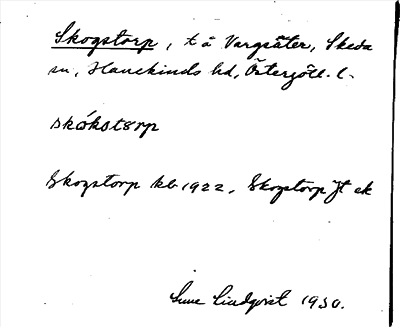 Skogstorp, t å Vargsäter, Skeda
sn, Hanekinds hd, Östergötl. l.
skókstɛrp
Skogstorp kb 1922, Skogstorp Jt ek
Sune Lindqvist 1930.